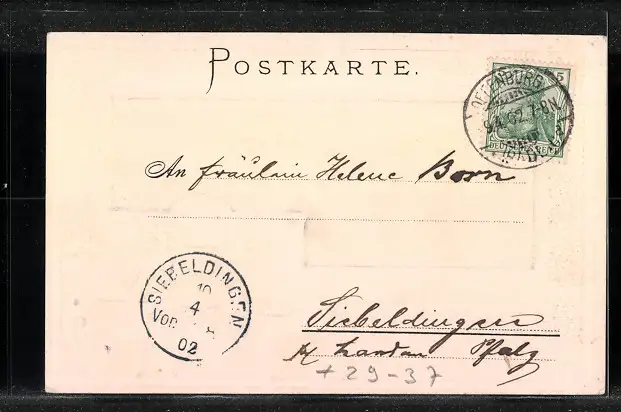 POSTKARTE.
OFFENBURG
9.4.02.7-8N
(BADEN)
DEUTSCHES REICH
5
An Fräulein Helene Born
SIEBELDINGEN
10
4
Vor
02
Siebeldingen
Landau Pfalz
+ 29-37